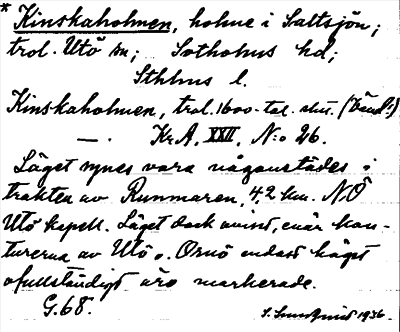 * Kinskaholmen, holme i Saltsjön;
trol. Utö sn; Sotholms hd;
Sthlms l.
Kinskaholmen, trol. 1600-tal. slut. (Tänd!)
— . Kr.A. XXII, N:o 26.
Läget synes vara någonstädes i
trakten av Runmaren, 4,2 km. NÖ
Utö kapell. Läget dock ovisst, enär kon-
turerna av Utö o. Ornö endast högst
ofullständigt äro markerade.
G. 68.
1936.